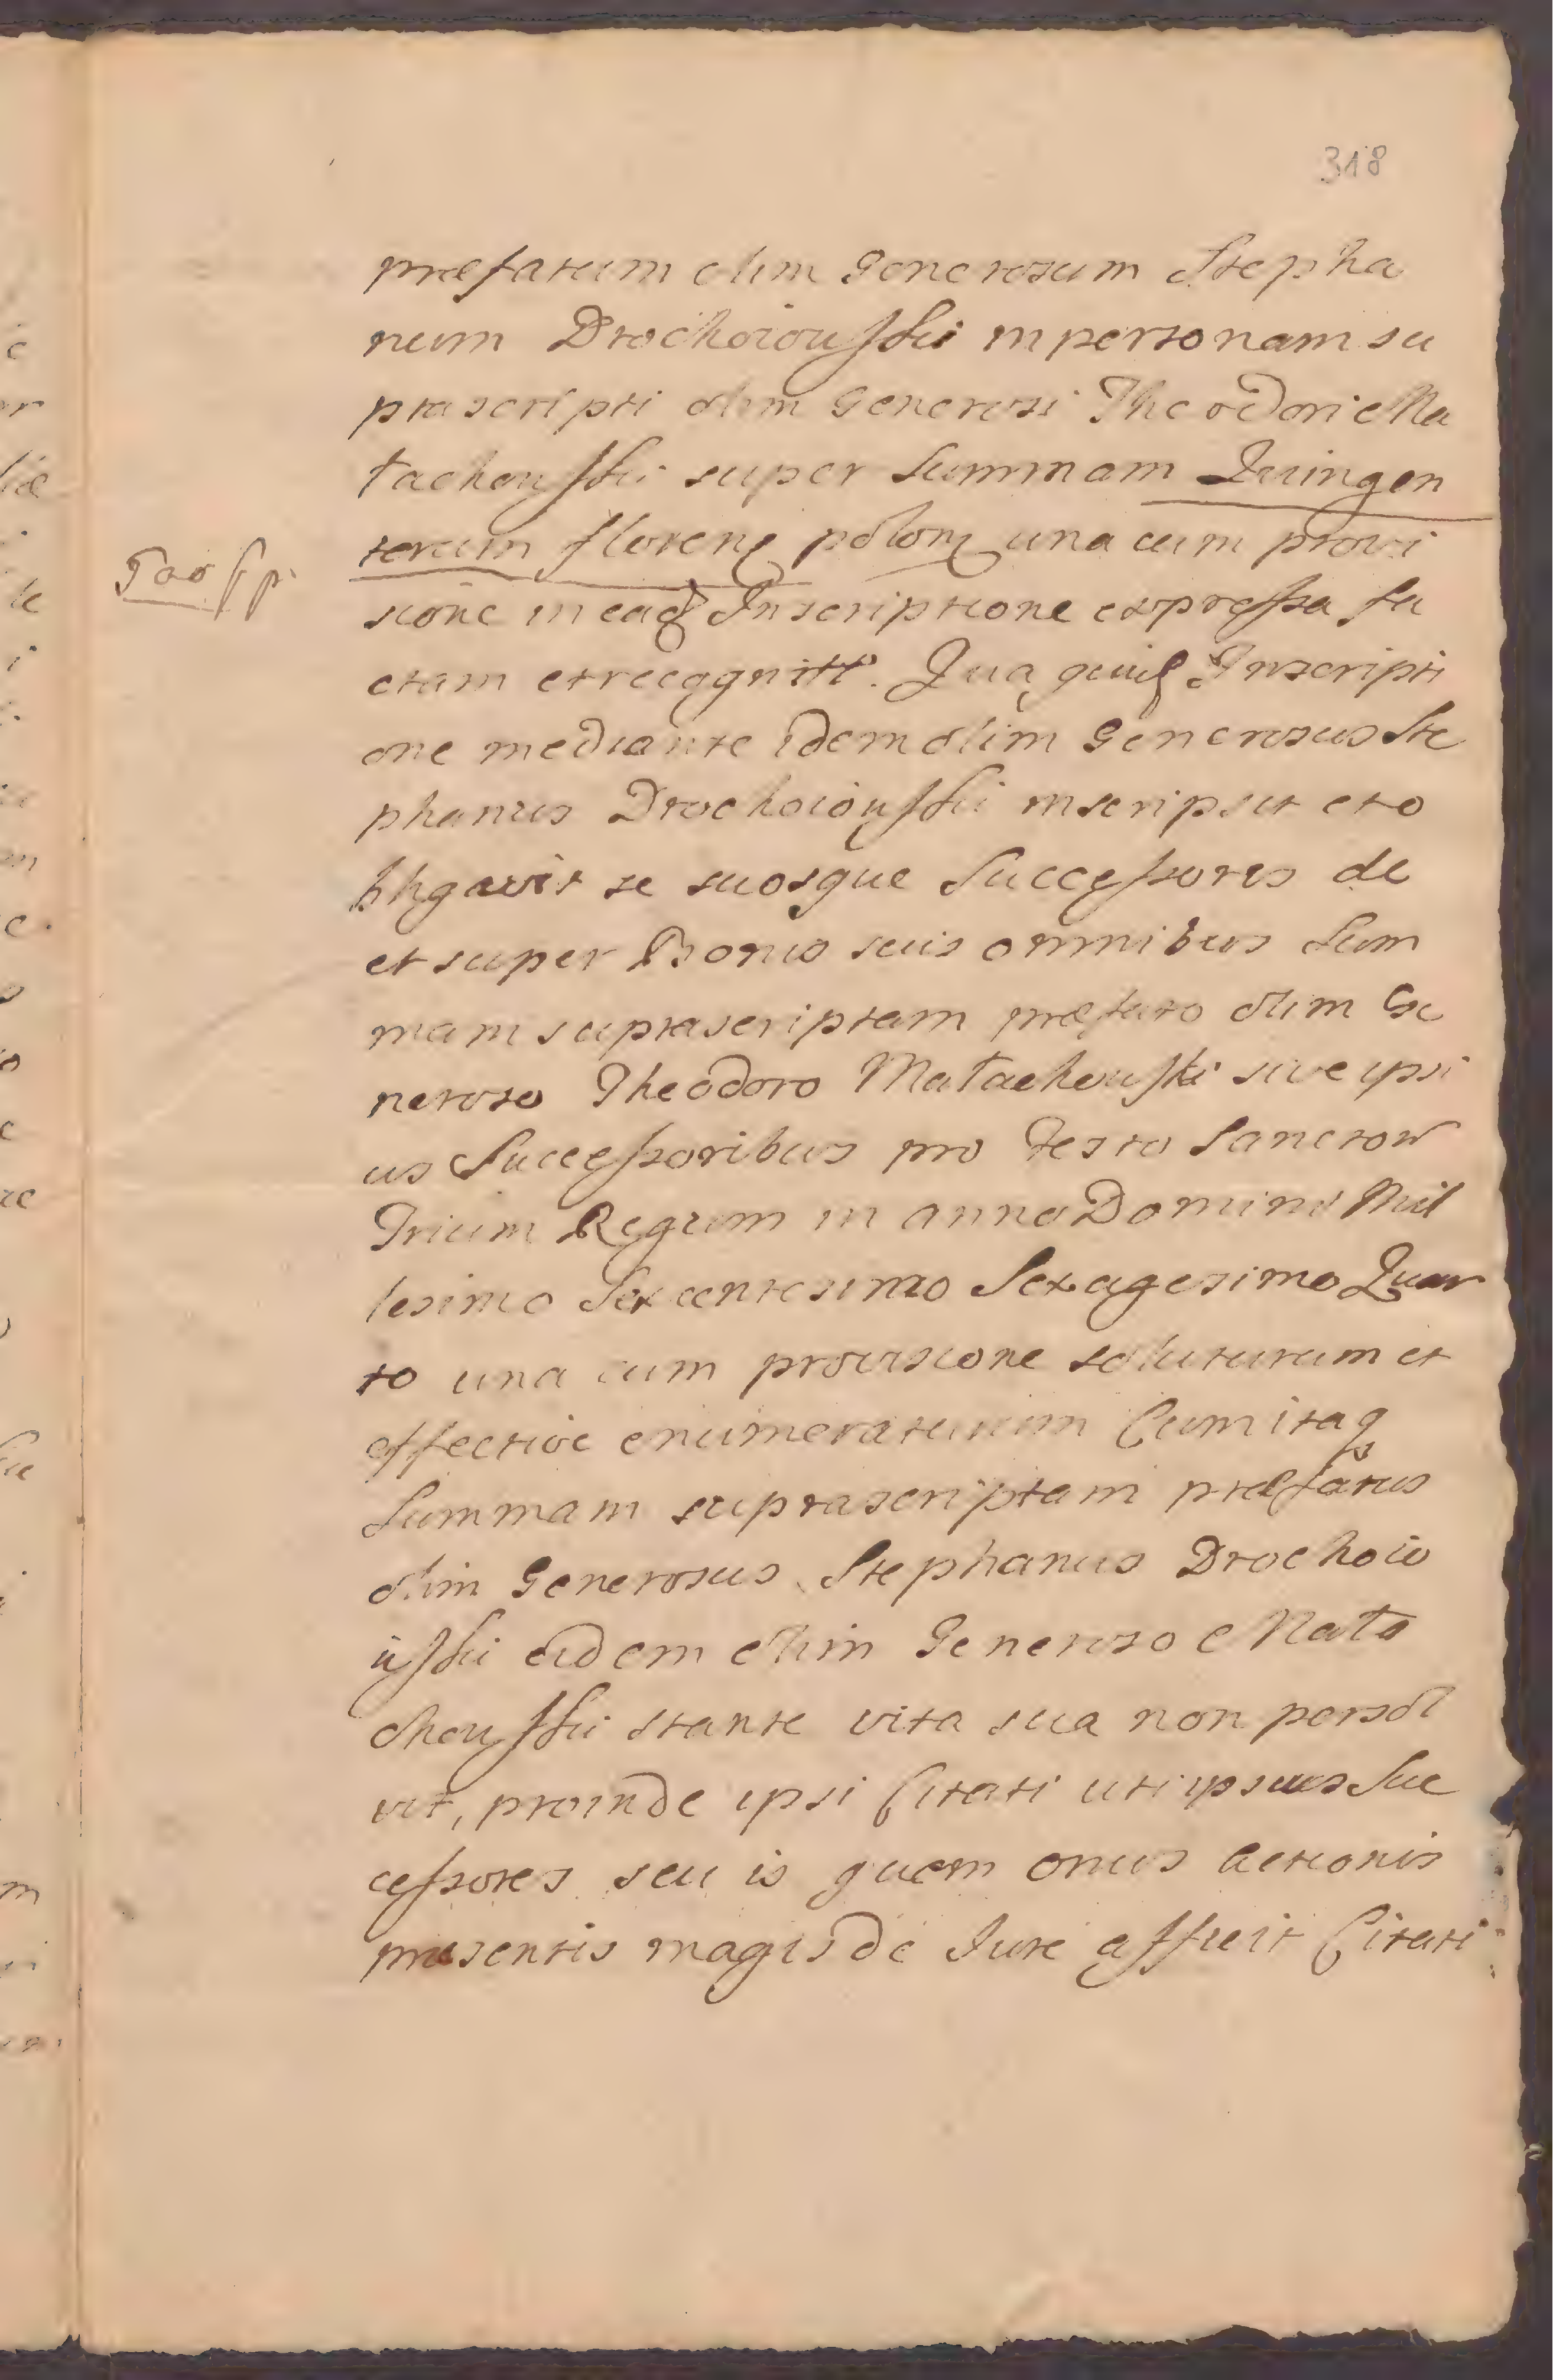 318
præfatum olim Generosum Stepha
num Drochoiowskii in personam su
prascripti olim Generosi Theodori Ma
łachowskii super summam Quingen
torum florenų polonų una cum provi
500 fp.
sione in eadȝ Inscriptione expressa fa
ctam et recognitt. Qua quidȝ Inscripti
one mediante idem olim Generosus Ste
phanus Drochoiowskii inscripsit et o
bligavit se suosque Successores de
et super Bonis suis omnibus Sum
mam suprascriptam præfato olim Ge
neroso Theodoro Małachowski sive ipsi
us Successoribus pro Festo Sanctor
Trium Regum in anno Domini Mil
lesimo Sexcentesimo Sexagesimo Quar
to una cum provisione soluturum et
effective enumeraturum Cum itaqȝ
Summam suprascriptam præfatus
olim Generosus Stephanus Drochoio
uskii eidem olim Generoso Mała
chowskii stante vita sua non persol
vit, proinde ipsi Citati uti ipsius Suc
cessores seu is quem onus actionis
præsentis magis de Iure afficit Citati